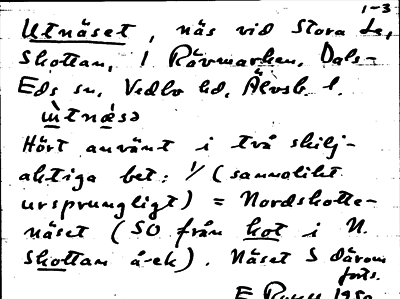 1-3
Utnäset, näs vid Stora Le,
Skottan, i Rävmarken, Dals-
Eds sn, Vedbo hd, Älvsb. l.
ùtnæ̀sə
Hört använt i två skilj-
aktiga bet: 1/ (sannolikt
ursprungligt) = Nordskotte-
näset (SO från kot i N.
Skottan å ek). Näset S därom
forts.
E 1950